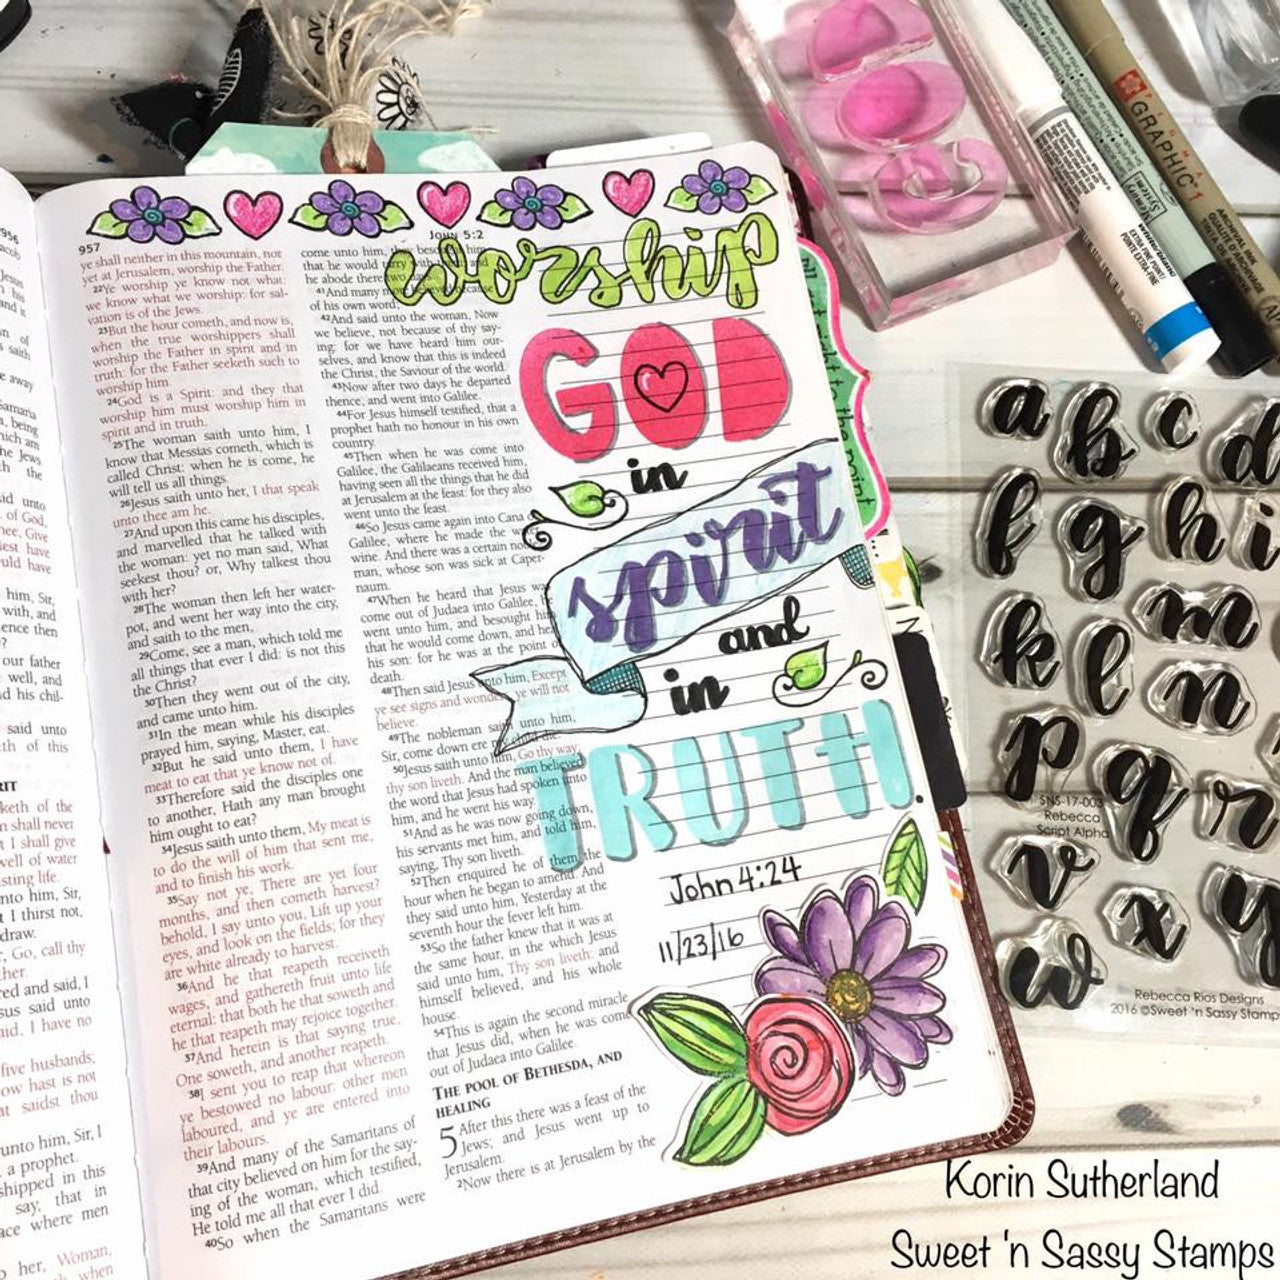 957
John 5:2
ye shall neither in this mountain, nor
yet at Jerusalem, worship the Father.
22Ye worship ye know not what:
we know what we worship: for sal-
vation is of the Jews.
23But the hour cometh, and now is,
when the true worshippers shall
worship the Father in spirit and in
truth: for the Father seeketh such to
worship him.
24God is a Spirit: and they that
worship him must worship him in
spirit and in truth.
25The woman saith unto him, I
know that Messias cometh, which is
called Christ: when he is come, he
will tell us all things.
26Jesus saith unto her, I that speak
unto thee am he.
27And upon this came his disciples,
and marvelled that he talked with
the woman: yet no man said, What
seekest thou? or, Why talkest thou
with her?
28The woman then left her water-
pot, and went her way into the city,
and saith to the men,
29Come, see a man, which told me
all things that ever I did: is not this
the Christ?
30Then they went out of the city,
and came unto him.
31In the mean while his disciples
prayed him, saying, Master, eat.
32But he said unto them, I have
meat to eat that ye know not of.
33Therefore said the disciples one
to another, Hath any man brought
him ought to eat?
34Jesus saith unto them, My meat is
to do the will of him that sent me,
and to finish his work.
35Say not ye, There are yet four
months, and then cometh harvest?
behold, I say unto you, Lift up your
eyes, and look on the fields; for they
are white already to harvest.
36And he that reapeth receiveth
wages, and gathereth fruit unto life
eternal: that both he that soweth and
he that reapeth may rejoice together.
37And herein is that saying true,
One soweth, and another reapeth.
38I sent you to reap that whereon
ye bestowed no labour: other men
laboured, and ye are entered into
their labours.
39And many of the Samaritans of
that city believed on him for the say-
ing of the woman, which testified,
He told me all that ever I did.
40So when the Samaritans were
come unto him, they besought him
that he would tarry with
he abode there two
41And many
of his own word;
42And said unto the woman, Now
we believe, not because of thy say-
ing: for we have heard him our-
selves, and know that this is indeed
the Christ, the Saviour of the world.
43Now after two days he departed
thence, and went into Galilee.
44For Jesus himself testified, that a
prophet hath no honour in his own
country.
45Then when he was come into
Galilee, the Galilaeans received him,
having seen all the things that he did
at Jerusalem at the feast: for they also
went unto the feast.
46So Jesus came again into Cana
Galilee, where he made the
wine. And there was a certain
man, whose son was sick at Caper-
naum.
47When he heard that Jesus
come out of Judaea into Galilee,
went unto him, and besought
that he would come down, and
his son: for he was at the point
death.
48Then said Jesus unto him, Except
ye see signs and ye will not
believe.
49The nobleman saith unto him,
Sir, come down ere child die.
50Jesus saith unto him, Go thy way;
thy son liveth. And the man believed
the word that Jesus had spoken unto
him, and he went his way.
51And as he was now going down,
his servants met him, and told him,
saying, Thy son liveth.
52Then enquired he of them the
hour when he began to amend. And
they said unto him, Yesterday at the
seventh hour the fever left him.
53So the father knew that it was at
the same hour, in the which Jesus
said unto him, Thy son liveth: and
himself believed, and his whole
house.
54This is again the second miracle
that Jesus did, when he was come
out of Judaea into Galilee.
THE POOL OF BETHESDA, AND
HEALING
5 After this there was a feast of the
Jews; and Jesus went up to
Jerusalem.
2Now there is at Jerusalem by the
worship
GOD
in
spirit
and
in
TRUTH.
John 4:24
11/23/16
GRAPHIC 1
a b c d
f g h i
k l m n
p q r
v w x y
SNS-17-003
Rebecca
Script Alpha
Rebecca Rios Designs
2016 ©Sweet 'n Sassy Stamps
Korin Sutherland
Sweet 'n Sassy Stamps